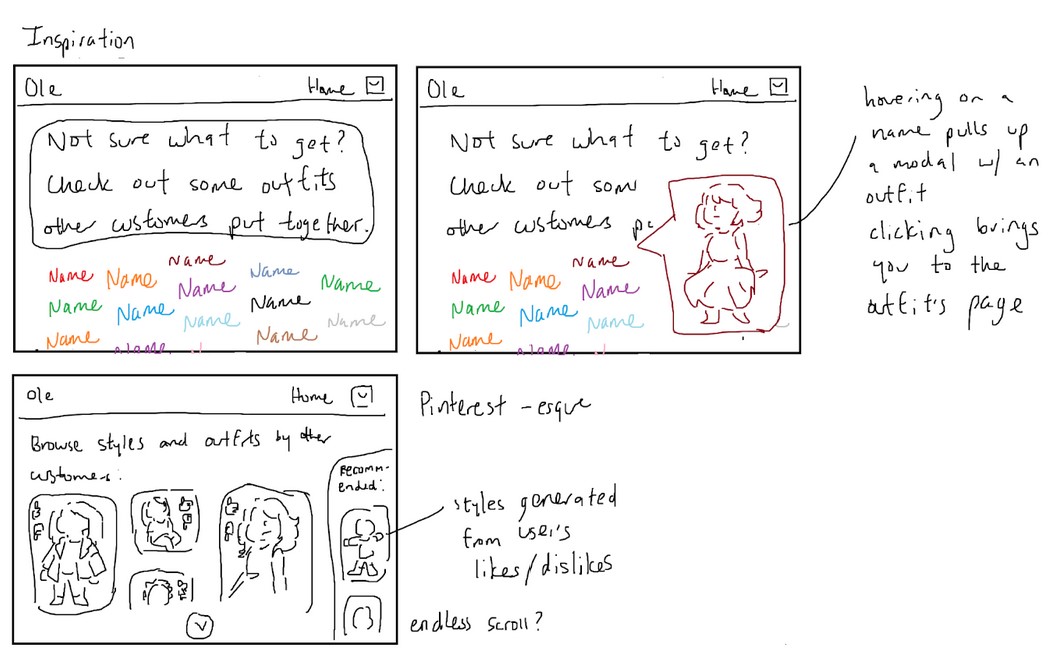 Inspiration
Ole Home
Not sure what to get?
Check out some outfits
other customers put together.
Name Name Name Name Name
Name Name Name Name
Name Name Name
Name Name Name
Ole Home
Not sure what to get?
Check out som
other customers pc
Name Name Name
Name Name Name
Name Name
Name
hovering on a
name pulls up
a modal w/ an
outfit
clicking brings
you to the
outfit's page
Ole Home
Browse styles and outfits by other
customers:
Recomm-
ended:
Pinterest - esque
styles generated
from user's
likes/dislikes
endless scroll?